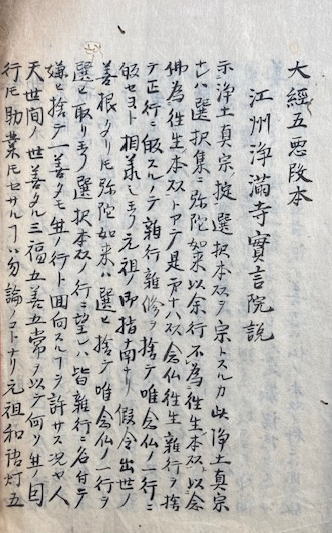 大經五惡段本
江州淨滿寺實言院説
示淨土真宗掟選択本双ヲ宗トスルカ此淨土真宗
ナレハ選択集ニ弥陀如来以余行不為徃生本双以念
佛為徃生本双トアテ是第十八双念仏徃生雜行ヲ捨
テ正行ニ皈スルノテ雜行雜修ヲ捨テ唯念仏ノ一行ニ
皈セヨト相羕シ玉フ元祖ノ御指南ナリ假令出世ノ
善根タリ𪜈弥陀如来ハ選ヒ捨テ唯念仏ノ一行ヲ
選ヒ取リ玉フ選択本双ノ行ニ望レハ皆雜行ニ名付テ
嫌ヒ捨テ一善タモ生ノ行ト回向スルヿヲ許サス况ヤ人
天世間ノ世善タル三福五善五常ヲ以テ何ソ生ノ因
行𪜈助業𪜈セサルヿハ勿論ノコトナリ元祖和語灯五